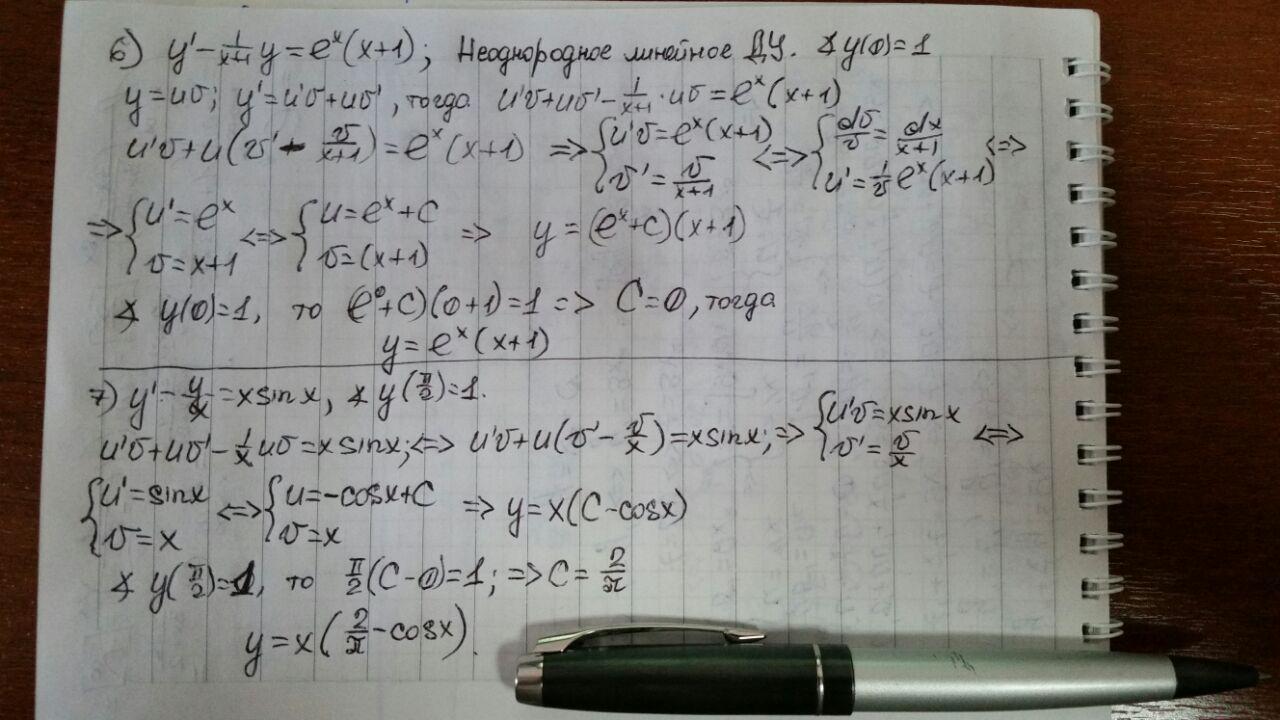 6) y' - 1/(x+1) y = e^x(x+1); Неоднородное линейное ДУ. ∢ y(0) = 1
y = uv; y' = u'v + uv', тогда u'v + uv' - 1/(x+1) · uv = e^x(x+1)
u'v + u(v' - v/(x+1)) = e^x(x+1) => { u'v = e^x(x+1) ; v' = v/(x+1) <=> { dv/v = dx/(x+1) ; u' = 1/v e^x(x+1) <=>
=> { u' = e^x ; v = x+1 <=> { u = e^x + C ; v = (x+1) => y = (e^x + C)(x+1)
∢ y(0) = 1, то (e^0 + C)(0+1) = 1 => C = 0, тогда
y = e^x(x+1)
7) y' - y/x = x sin x, ∢ y(π/2) = 1.
u'v + uv' - 1/x uv = x sin x; <=> u'v + u(v' - v/x) = x sin x; => { u'v = x sin x ; v' = v/x <=>
{ u' = sin x ; v = x <=> { u = -cos x + C ; v = x => y = x(C - cos x)
∢ y(π/2) = 1, то π/2 (C - 0) = 1; => C = 2/π
y = x(2/π - cos x).